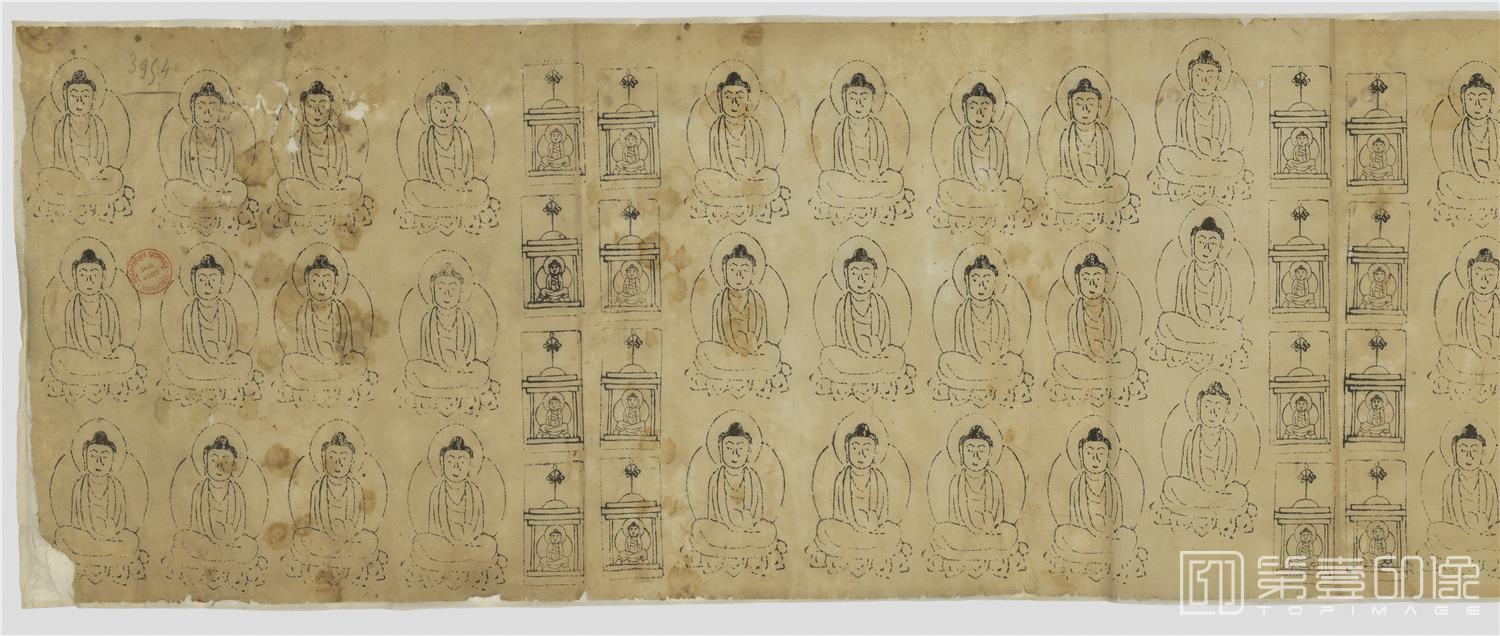 3954
第壹印像
TOPIMAGE